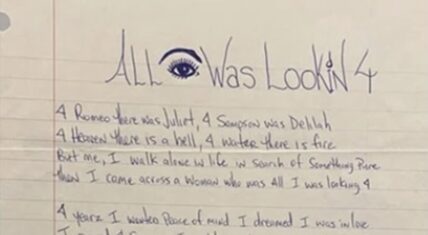 ALL 👁 Was Lookin 4
4 Romeo there was Juliet, 4 Sampson was Delilah
4 Heaven there is a hell, 4 water there is fire
But me, I walk alone in life in search of Something Pure
then I came across a woman who was All I was looking 4
4 years I wanted Peace of mind I dreamed I was in love